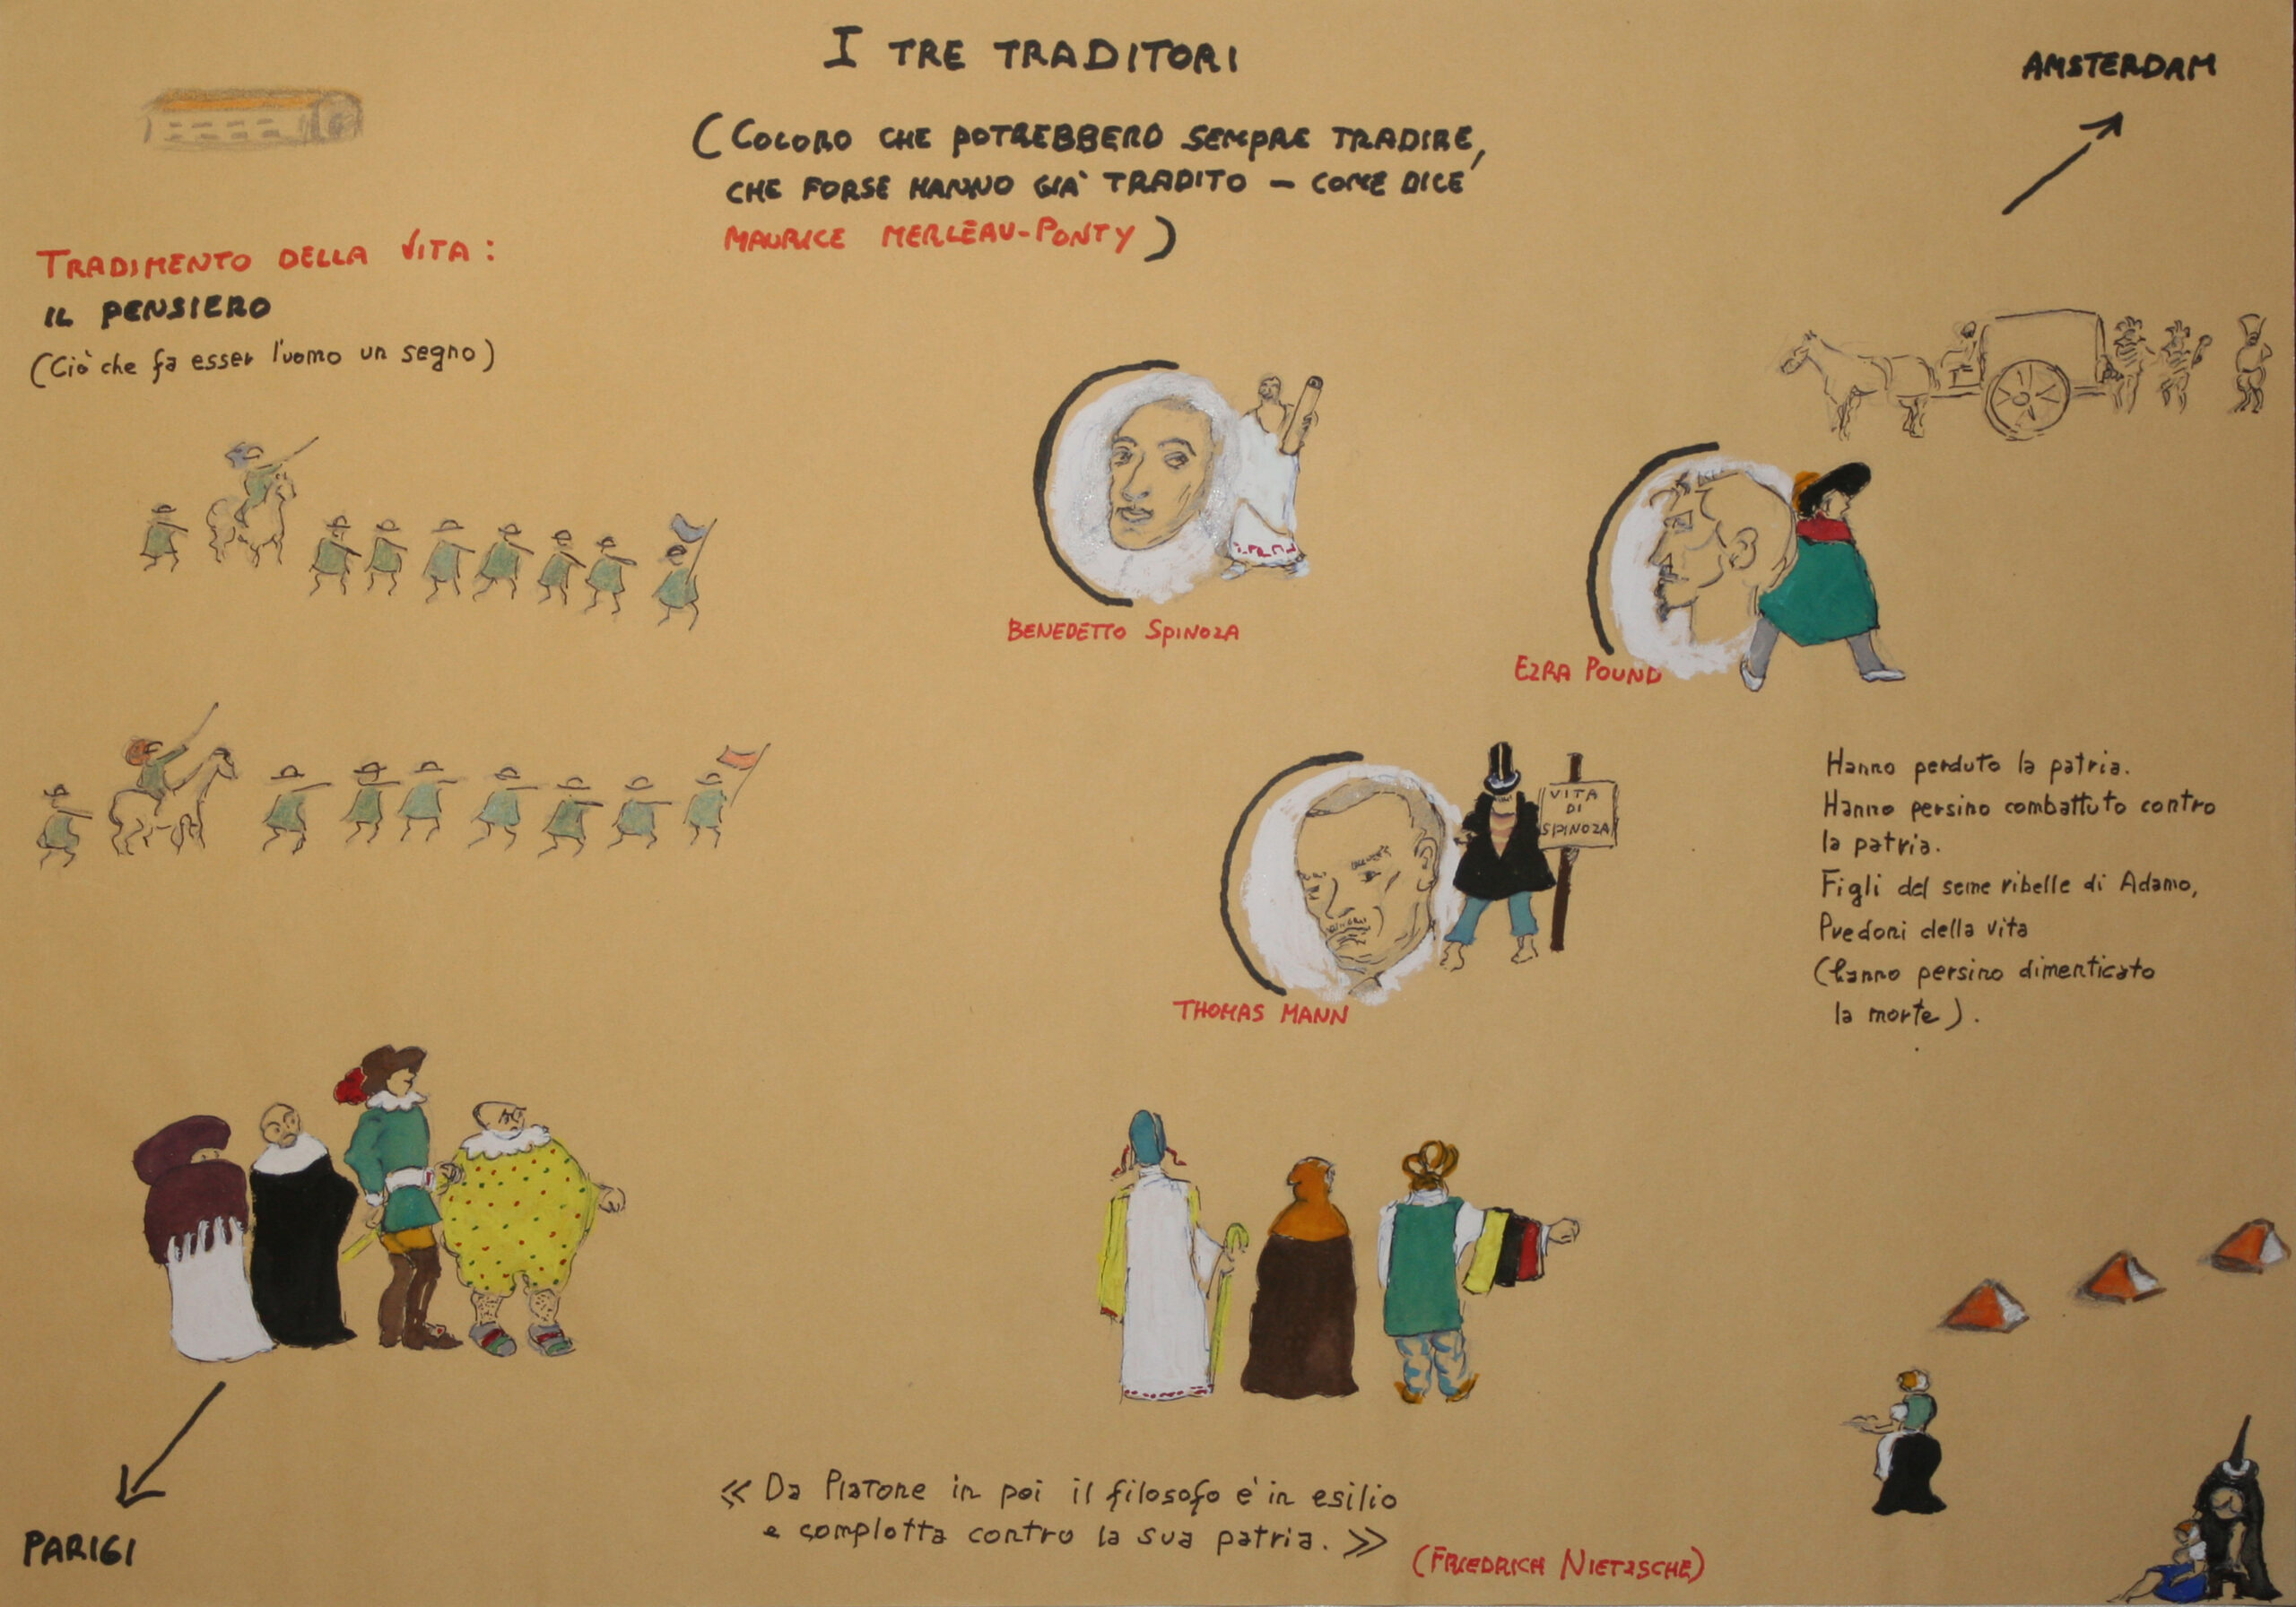 I TRE TRADITORI
(COLORO CHE POTREBBERO SEMPRE TRADIRE,
CHE FORSE HANNO GIÀ TRADITO – COME DICE
MAURICE MERLEAU-PONTY)
AMSTERDAM
TRADIMENTO DELLA VITA:
IL PENSIERO
(Ciò che fa esser l'uomo un segno)
BENEDETTO SPINOZA
EZRA POUND
VITA
DI
SPINOZA
THOMAS MANN
Hanno perduto la patria.
Hanno persino combattuto contro
la patria.
Figli del seme ribelle di Adamo,
Predoni della vita
(hanno persino dimenticato
la morte).
PARIGI
« Da Platone in poi il filosofo è in esilio
e complotta contro la sua patria. »
(FRIEDRICH NIETZSCHE)